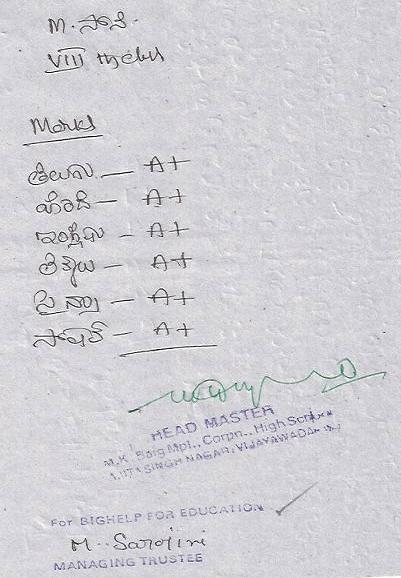 M. సాని.
VIII th class
Marks
తెలుగు — A+
హిందీ — A+
ఇంగ్లీషు — A+
లెక్కలు — A+
సైన్సు — A+
సోషల్ — A+
HEAD MASTER
M.K. Baig Mpl., Corpn., High School
SINGH NAGAR, VIJAYAWADA
For BIGHELP FOR EDUCATION
M. Sarojini
MANAGING TRUSTEE